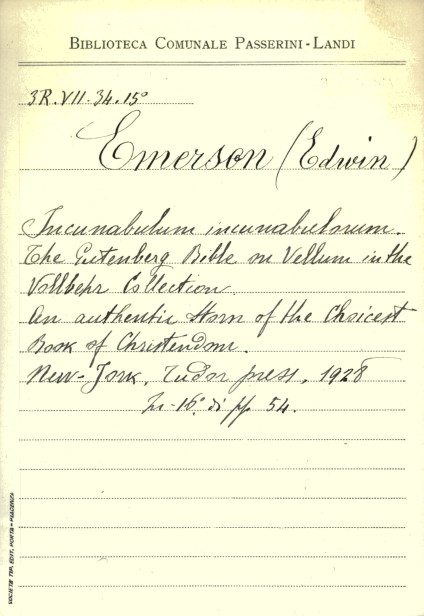 BIBLIOTECA COMUNALE PASSERINI-LANDI
3R.VII.34.15°
Emerson (Edwin)
Incunabulum incunabulorum.
The Gutenberg Bible on Vellum in the
Vollbehr Collection.
An authentic Storn of the Choicest
Book of Christendom.
New-York, Tudor press, 1928
In-16° di pp. 54.
SOCIETÀ TIP. EDIT. PORTA - PIACENZA